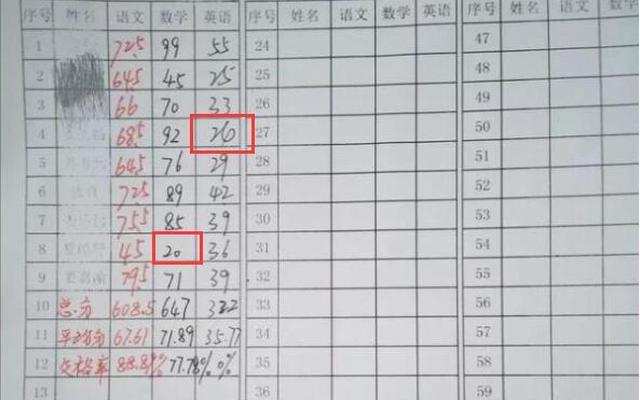 序号 姓名 语文 数学 英语 序号 姓名 语文 数学 英语 序号 姓名 语文 数学
1 72.5 99 55 24 47
2 64.5 45 25 25 48
3 66 70 33 26 49
4 68.5 92 26 27 50
5 64.5 76 29 28 51
6 72.5 89 42 29 52
7 75.5 85 39 30 53
8 45 20 36 31 54
9 79.5 71 39 32 55
10 总分 608.5 647 322 33 56
11 平均分 67.61 71.89 35.77 34 57
12 及格率 88.89% 77.78% 0% 35 58
13 36 59